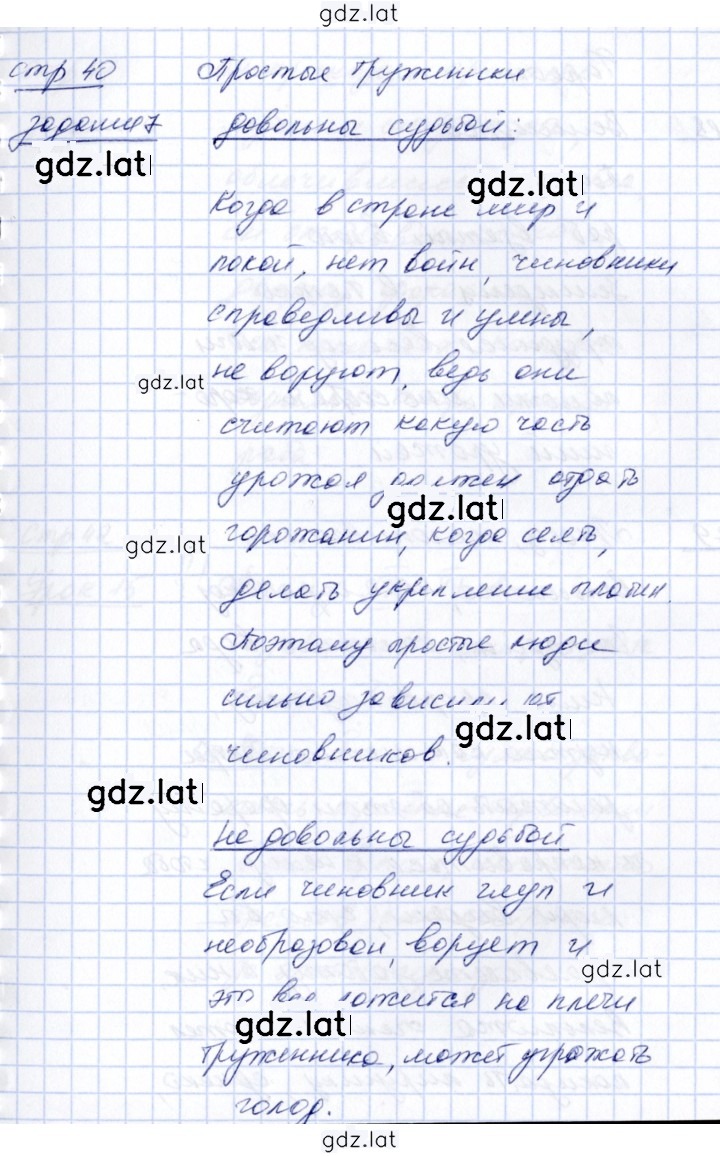 gdz.lat
стр 40
Простые труженики
задание 7
довольны судьбой:
gdz.lat
gdz.lat
Когда в стране мир и
покой, нет войн, чиновники
справедливы и умны,
gdz.lat
не воруют, ведь они
считают какую часть
урожая должен отдать
gdz.lat
gdz.lat
горожанин, когда сеять,
делать укрепление плотин.
Поэтому простые люди
сильно зависят от
gdz.lat
чиновников.
gdz.lat
Не довольны судьбой
Если чиновник глуп и
необразован, ворует и
gdz.lat
это все ложится на плечи
gdz.lat
труженника, может угрожать
голод.
gdz.lat